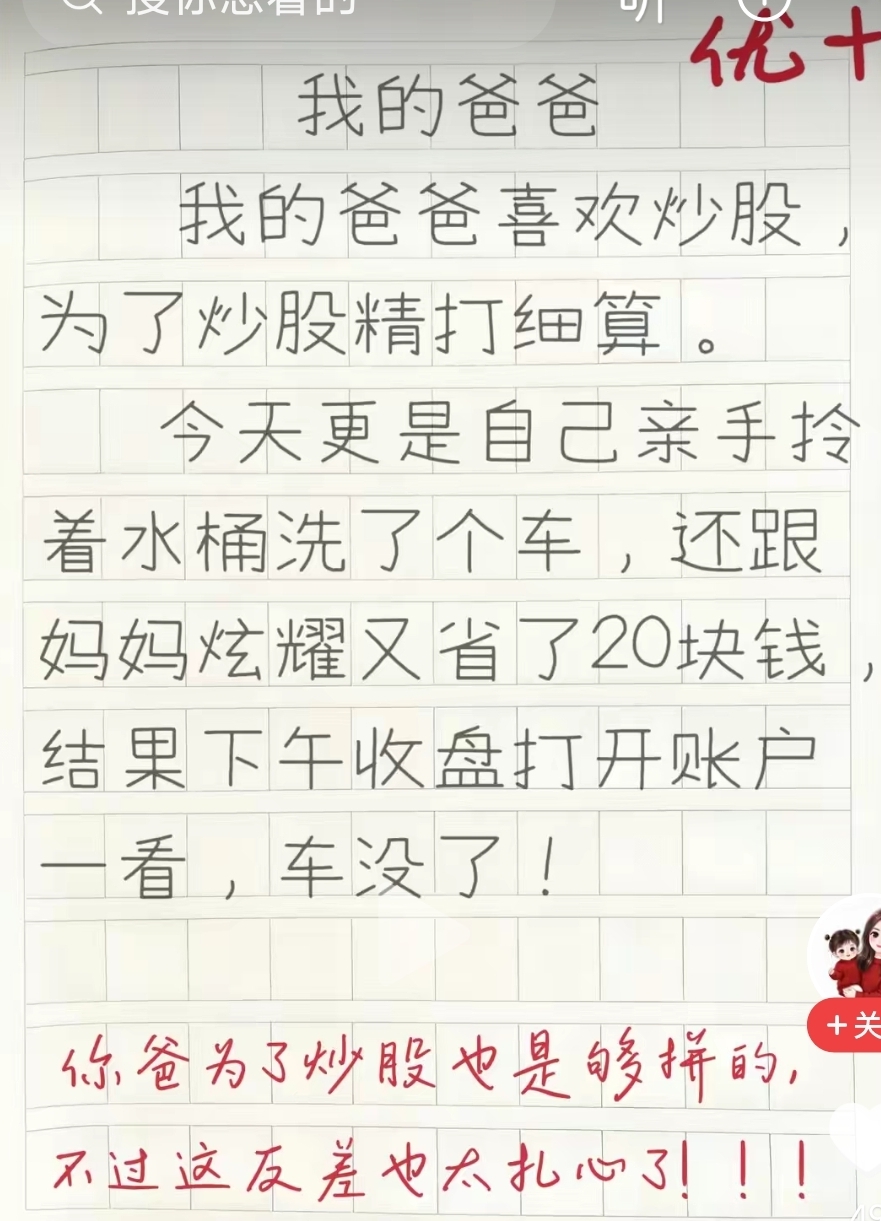 搜你想看的
听
优+
我的爸爸
我的爸爸喜欢炒股，
为了炒股精打细算。
今天更是自己亲手拎
着水桶洗了个车，还跟
妈妈炫耀又省了20块钱，
结果下午收盘打开账户
一看，车没了！
+关
你爸为了炒股也是够拼的，
不过这反差也太扎心了！！！